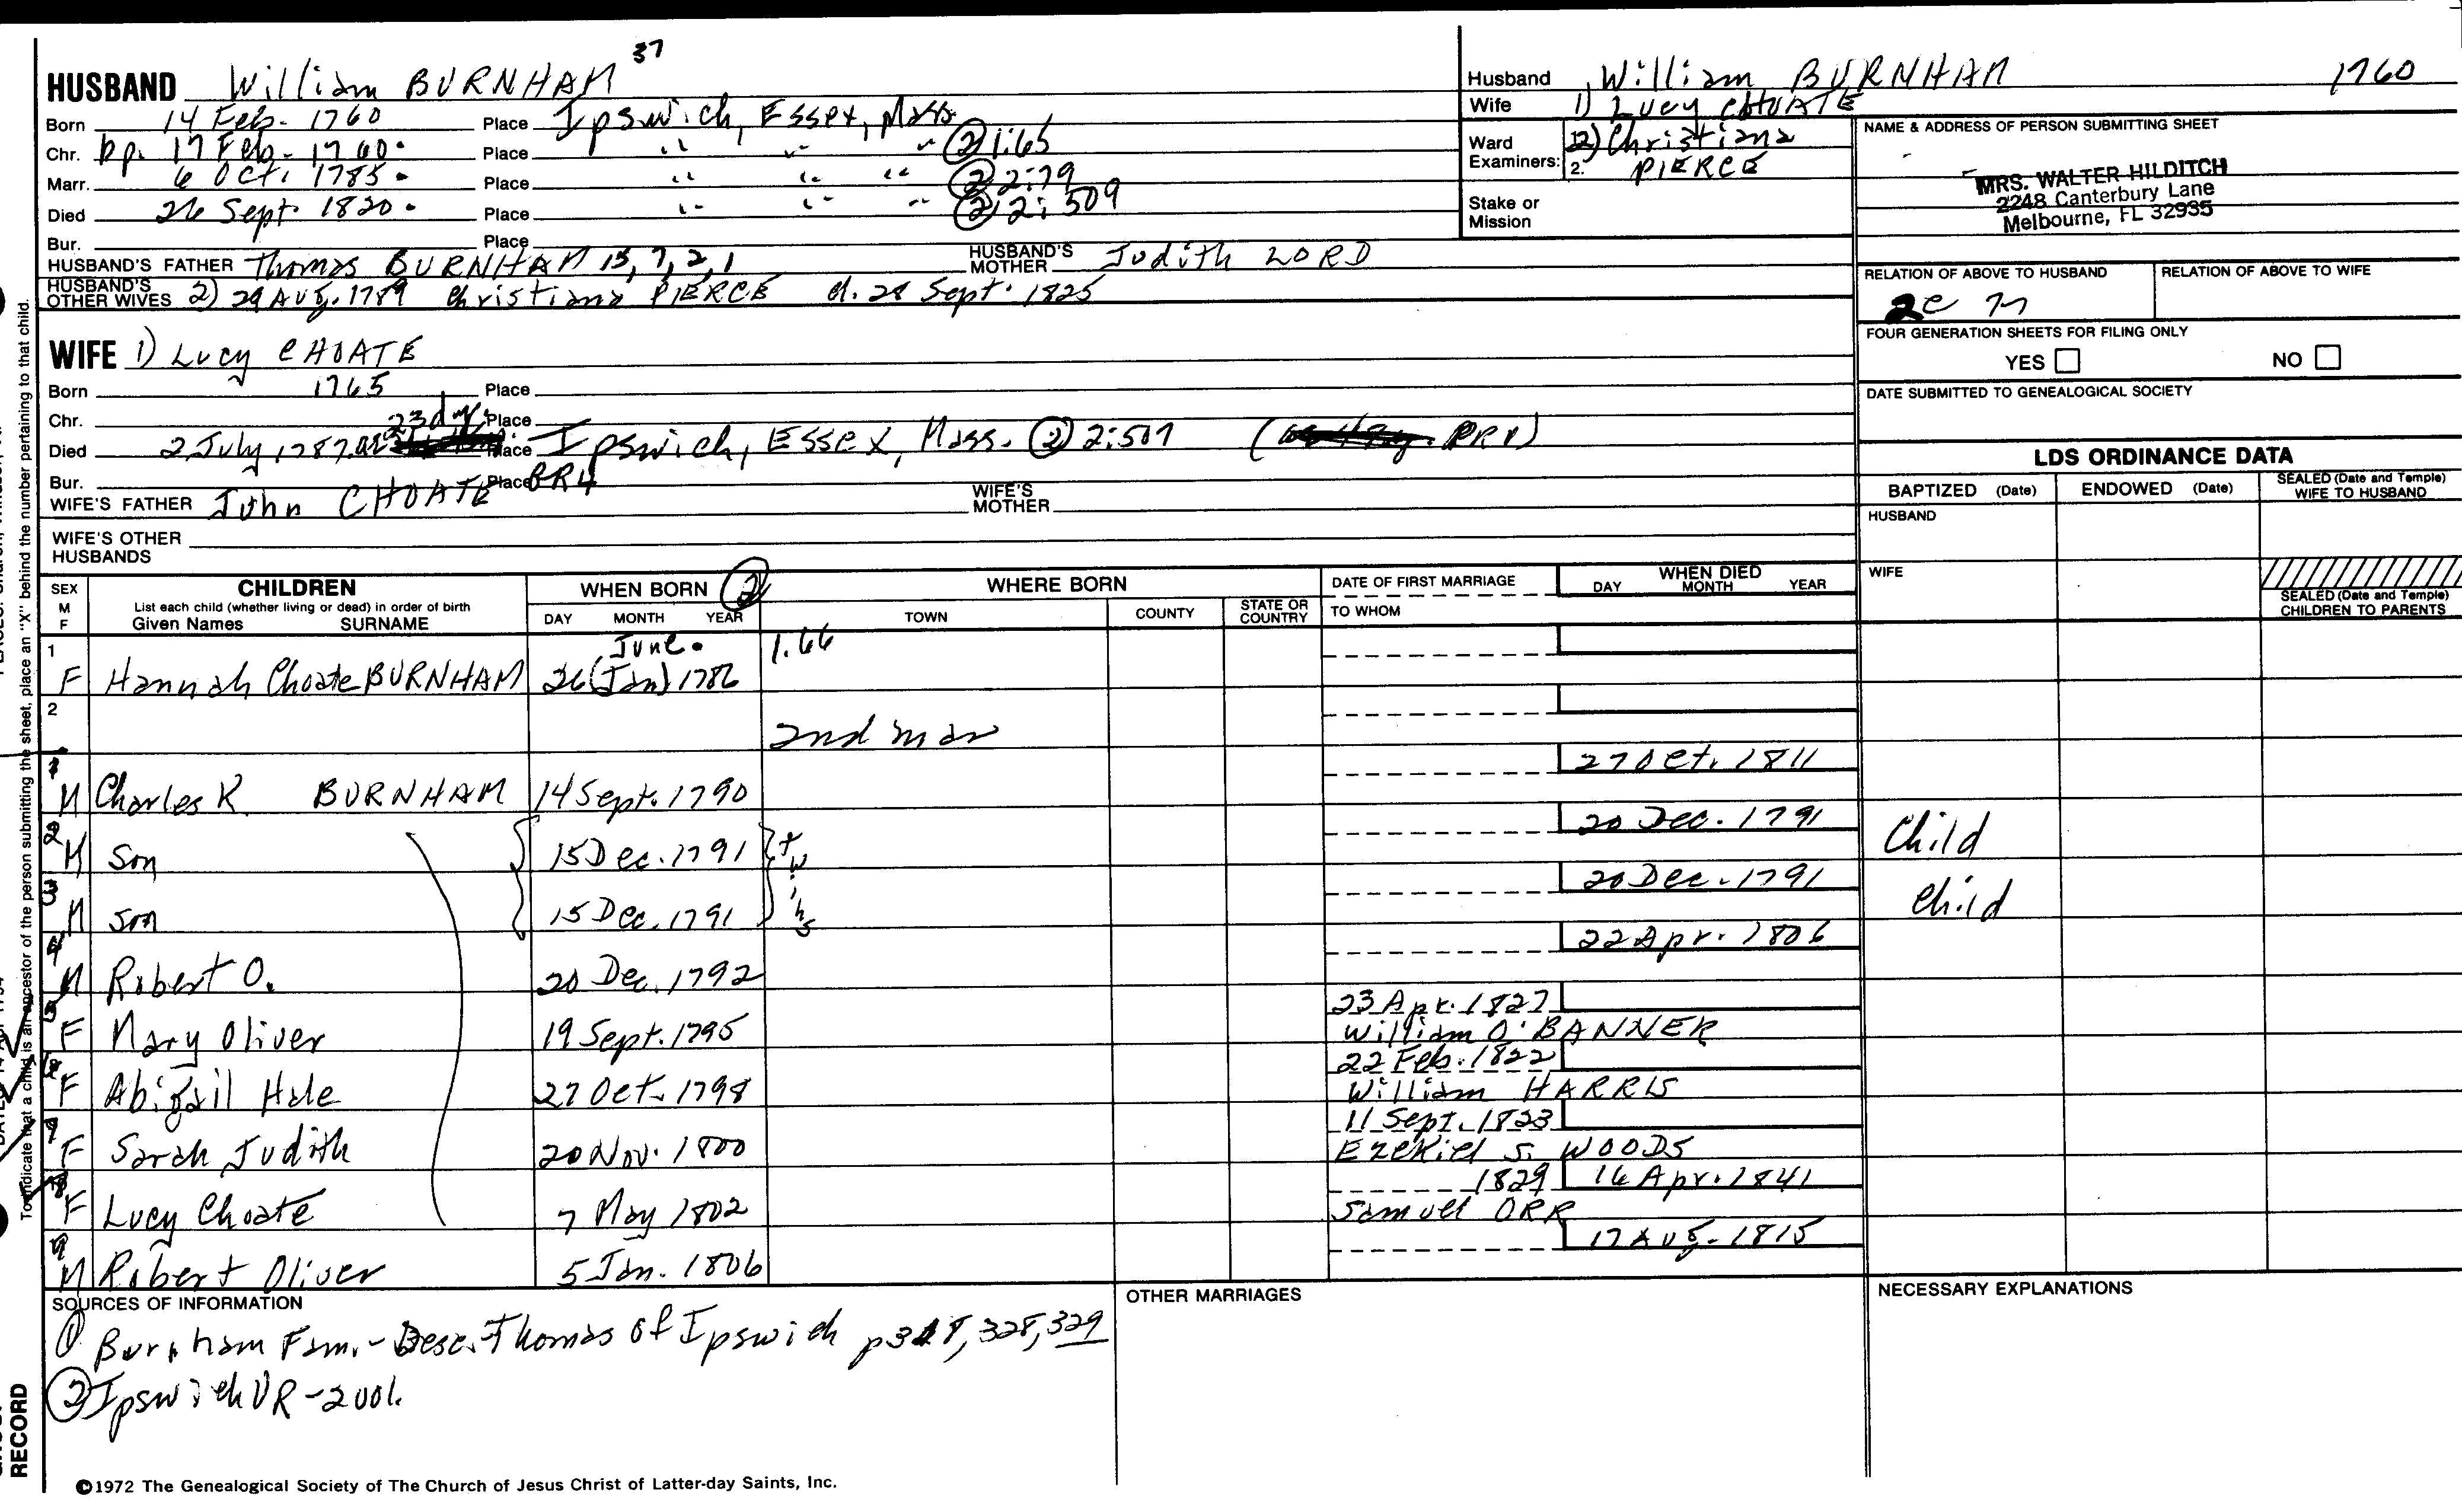 37
HUSBAND William BURNHAM
Born 14 Feb. 1760 Place Ipswich, Essex, Mass
Chr. bp. 17 Feb. 1760. Place " " " ② 1:65
Marr. 6 Oct. 1785. Place " " " ② 2:79
Died 26 Sept. 1820. Place " " " ② 2:509
Bur. Place
HUSBAND'S FATHER Thomas BURNHAM 15, 7, 2, 1 HUSBAND'S MOTHER Judith LORD
HUSBAND'S OTHER WIVES 2) 29 Aug. 1789 Christiana PIERCE d. 28 Sept. 1825
WIFE 1) Lucy CHOATE
Born 1765 Place
Chr. Place
23d yr.
Died 2 July 1787 Place Ipswich, Essex, Mass. ② 2:507 ( PR1)
Bur. Place GR4
WIFE'S FATHER John CHOATE WIFE'S MOTHER
WIFE'S OTHER HUSBANDS
Husband William BURNHAM 1760
Wife 1) Lucy CHOATE
Ward Examiners: 2) Christiana
2. PIERCE
Stake or Mission
NAME & ADDRESS OF PERSON SUBMITTING SHEET
MRS. WALTER HILDITCH
2248 Canterbury Lane
Melbourne, FL 32935
RELATION OF ABOVE TO HUSBAND RELATION OF ABOVE TO WIFE
FOUR GENERATION SHEETS FOR FILING ONLY
YES NO
DATE SUBMITTED TO GENEALOGICAL SOCIETY
LDS ORDINANCE DATA
BAPTIZED (Date) ENDOWED (Date) SEALED (Date and Temple) WIFE TO HUSBAND
HUSBAND
WIFE
SEALED (Date and Temple) CHILDREN TO PARENTS
SEX M F
CHILDREN
List each child (whether living or dead) in order of birth
Given Names SURNAME
WHEN BORN ②
DAY MONTH YEAR
WHERE BORN
TOWN COUNTY STATE OR COUNTRY
DATE OF FIRST MARRIAGE
TO WHOM
WHEN DIED
DAY MONTH YEAR
June. 1.66
1 F Hannah Choate BURNHAM 26 (Jan) 1786
2
2nd mar
1 M Charles K. BURNHAM 14 Sept. 1790 27 Oct. 1811
2 M son 15 Dec. 1791 twins 20 Dec. 1791 Child
3 M son 15 Dec. 1791 20 Dec. 1791 Child
4 M Robert O. 20 Dec. 1792 22 Apr. 1806
5 F Mary Oliver 19 Sept. 1795 23 Apr. 1827
William O'BANNER
6 F Abigail Hale 27 Oct. 1798 22 Feb. 1822
William HARRIS
7 F Sarah Judith 20 Nov. 1800 11 Sept. 1823
Ezekiel S. WOODS
8 F Lucy Choate 7 May 1802 1829 16 Apr. 1841
Samuel ORR
9 M Robert Oliver 5 Jan. 1806 17 Aug. 1815
SOURCES OF INFORMATION
① Burnham Fam. - Desc. Thomas of Ipswich p 328, 329
② Ipswich VR - 2 vol.
OTHER MARRIAGES
NECESSARY EXPLANATIONS
©1972 The Genealogical Society of The Church of Jesus Christ of Latter-day Saints, Inc.
To indicate that a child is an ancestor of the person submitting the sheet, place an "X" behind the number pertaining to that child.
RECORD